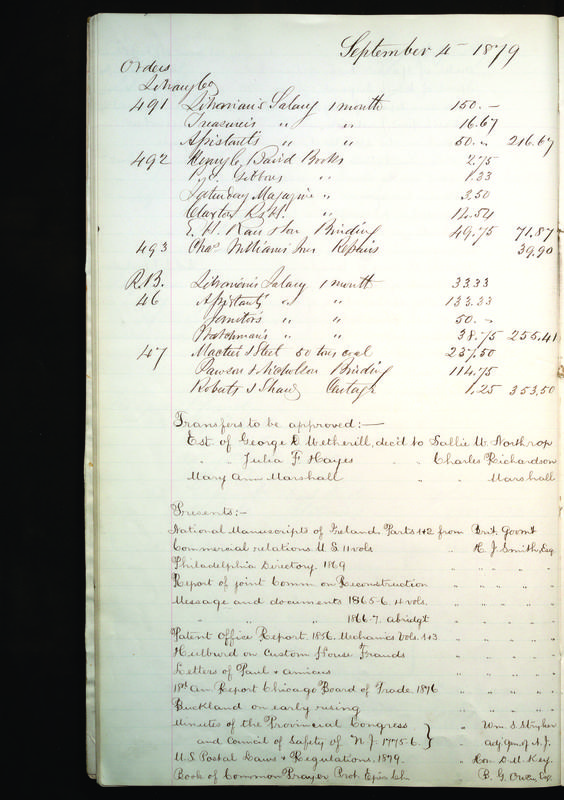 September 4 1879
Orders
Library Co
491 Librarian's Salary 1 month 150.-
Treasurer's " " 16.67
Assistant's " " 50.- 216.67
492 Henry C. David Books 2.75
Gibbons " 1.33
Saturday Magazine " 3.50
Claxton R & H. " 14.54
E. H. Rau & Son Binding 49.75 71.87
493 Chas Williams Repairs 39.90
R.B. Librarian's Salary 1 month 33.33
46 Assistants' " " 133.33
Janitor's " " 50.-
Watchman's " " 38.75 255.41
47 50 tons coal 237.50
Pawson & Nicholson Binding 114.75
Roberts & Shaw Cartage 1.25 353.50
Transfers to be approved:-
Est. of George D. Wetherill, dec'd to Sallie W. Northrop
" " Julia F. Hayes " " Charles Richardson
Mary Ann Marshall " " Marshall
Presents:-
National Manuscripts of Ireland. Parts 1 & 2 from Brit. Govmt
Commercial relations U.S. 11 vols " H. J. Smith, Esq.
Philadelphia Directory. 1869 " " " "
Report of joint Comm. on Reconstruction " " " "
Message and documents 1865-6. 4 vols. " " " "
" " " 1866-7. abridgt " " " "
Patent Office Report. 1856. Mechanics Vols. 1 & 3 " " " "
Hulburd on Custom House Frauds " " " "
Letters of Paul & Amicus " " " "
18th An. Report Chicago Board of Trade. 1876 " " " "
Buckland on early rising " " " "
Minutes of the Provincial Congress " Wm. S. Stryker
and Council of Safety of N.J. 1775-6. } adj. Gen. of N.J.
U.S. Postal Laws & Regulations. 1879. " Hon. D. M. Key.
Book of Common Prayer Prot. Epis. Ch. " B. G. Owen, Esq.